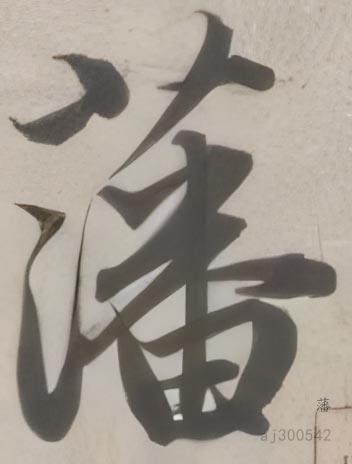 藩
藩
aj300542